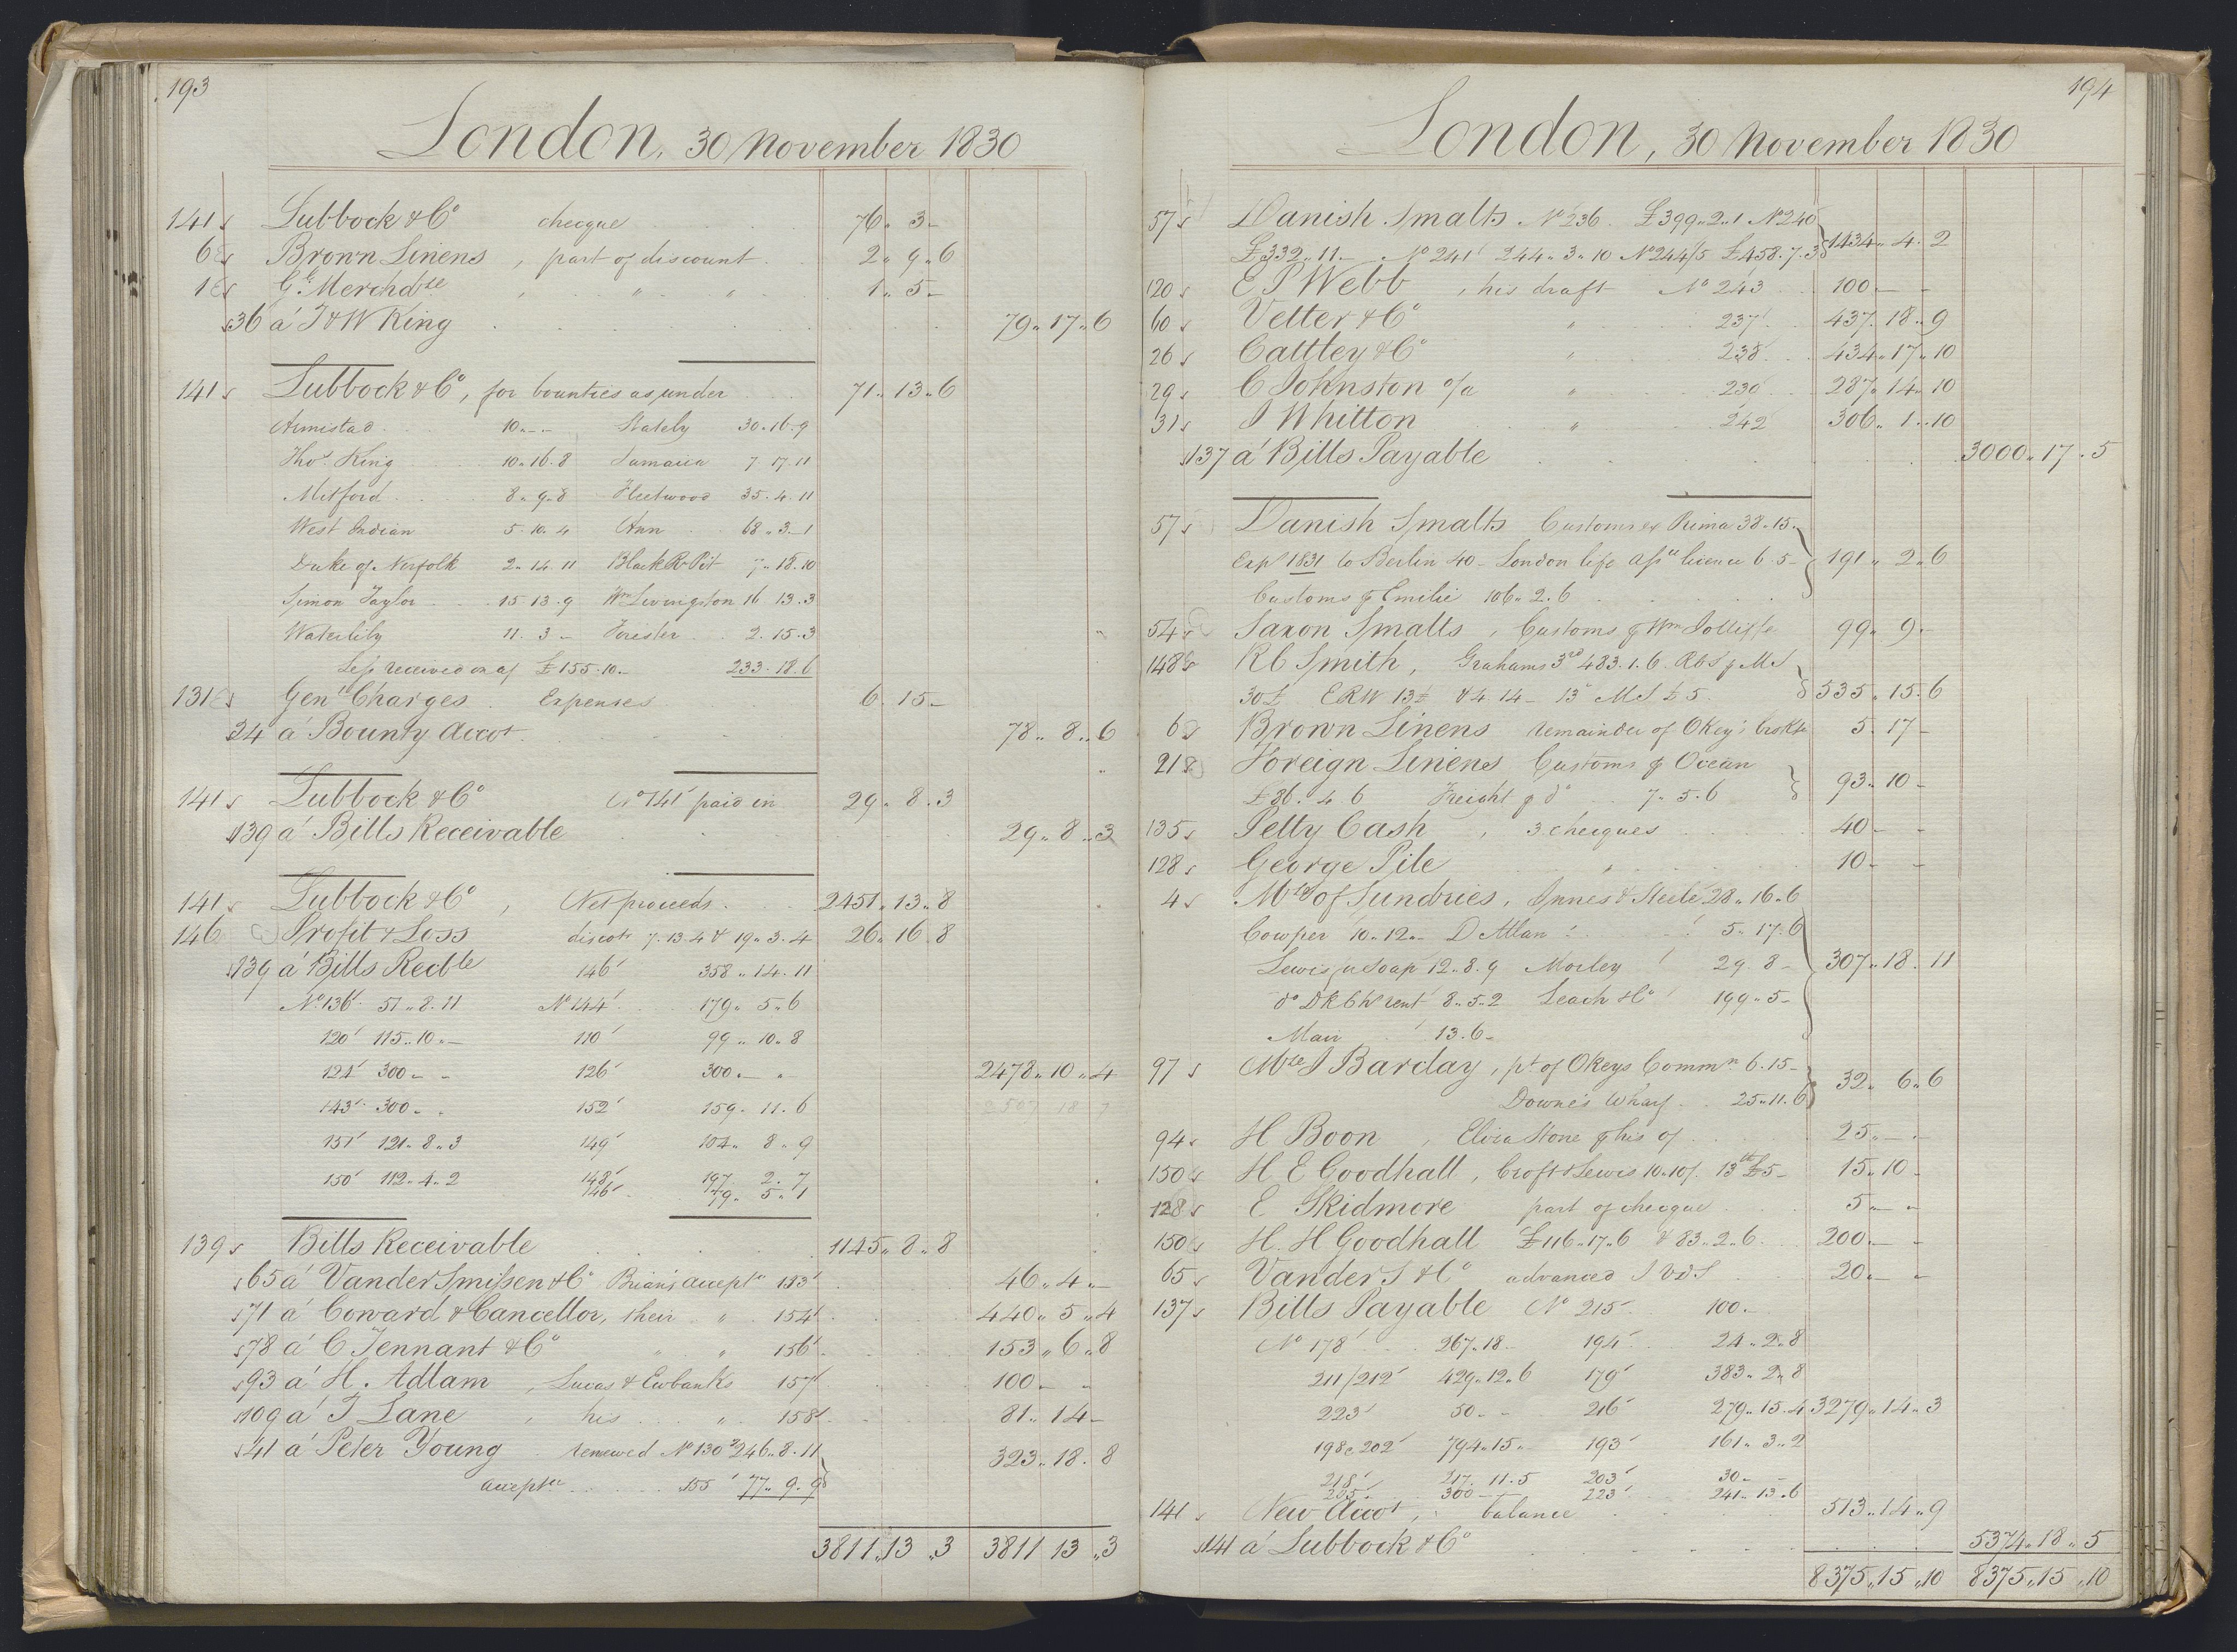 193
London, 30 November 1830
141 Lubbock & Co checque 76 " 3 -
6 Brown Linens , part of discount 2 " 9 " 6
1 Gl Merchdze " " " 1 " 5 -
36 á J & W King 79 " 17 " 6
141 Lubbock & Co, for bounties as under 71 " 13 " 6
Armistad 10 " - - Stately 30 " 16 " 9
Thos King 10 " 16 . 8 Jamaica 7 17 . 11
Mitford 8 " 9 " 8 Fleetwood 35 . 4 . 11
West Indian 5 . 10 . 4 Ann 68 " 3 . 1
Duke of Norfolk 2 " 14 . 11 Black R Pit 7 " 18 . 10
Simon Taylor 15 . 13 . 9 Wm Livingston 16 13 . 3
Waterlily 11 . 3 - Forester 2 . 15 . 3
Less received on a/ £155 . 10 - 233 . 18 . 6
131 Genl Charges . Expenses 6 . 15 -
34 á Bounty Accot 78 " 8 " 6
141 Lubbock & Co No 141 paid in 29 " 8 . 3
139 á Bills Receivable 29 " 8 " 3
141 Lubbock & Co , Net proceeds 2451 " 13 " 8
146 Profit & Loss discots 7 . 13 . 4 & 19 " 3 . 4 26 " 16 " 8
139 á Bills Recble 146 358 " 14 . 11
No 136 51 " 8 . 11 No 144 179 " 5 " 6
120 115 " 10 " - 110 99 " 10 " 8
121 300 - - 126 300 " - " 2478 " 10 " 4
143 300 " - 152 159 . 11 . 6
151 121 " 8 " 3 149 104 " 8 " 9
150 112 " 4 " 2 148 197 . 2 . 7
146 79 " 5 " 1
139 Bills Receivable 1145 " 8 " 8
65 á Vander Smissen & Co Brian's accepte 153 46 " 4 " -
71 á Coward & Cancellor, their " 154 440 " 5 " 4
78 á C Tennant & Co " " 156 153 " 6 " 8
93 á H. Adlam , Lucas & Ewbanks 157 100 - -
109 á T Lane , his " 158 81 " 14 -
41 á Peter Young renewed No 130 246 " 8 . 11 323 " 18 . 8
accepte 155 77 " 9 . 9
3811 " 13 " 3 3811 13 " 3
194
London, 30 November 1830
57 Danish Smalts No 236 £399 " 2 " 1 No 240
£332 " 11 - No 241 244 " 3 " 10 No 244/5 £458 . 7 . 3 1434 " 4 . 2
120 E P Webb , his draft No 243 100 - -
60 Vetter & Co " 237 437 . 18 " 9
26 Cattley & Co " 238 434 " 17 " 10
29 C Johnston o/a " 239 287 " 14 " 10
31 J Whitton " 242 306 " 1 " 10
137 á Bills Payable 3000 " 17 . 5
57 Danish Smalts Customs ex Prima 38 " 15 -
Exps 1831 to Berlin 40 - London life assce licence 6 . 5 - 191 " 2 " 6
Customs p Emilie 106 " 2 . 6
54 Saxon Smalts , Customs p Wm Jolliffe 99 " 9 -
148 R C Smith , Grahams 3rd 483 . 1 . 6 . RbS p MS
30£ ERW 13£ & 4 . 14 - 13 MS £5 . 535 " 15 . 6
6 Brown Linens remainder of Okey's 5 . 17 -
21 Foreign Linens Customs p Ocean
£86 . 4 6 Freight p do 7 " 5 . 6 93 " 10 -
135 Petty Cash , 3 checques 40 - -
128 George Pile " 10 - -
4 Mdze of Sundries, Innes & Steele 28 " 16 " 6
Cowper 10 " 12 " - D Allan 5 " 17 . 6
Lewis 12 " 8 . 9 Morley 29 . 8 - 307 " 18 . 11
do DKCW rent 8 " 5 " 2 Leach & Co 199 " 5 -
Mair 13 . 6 -
97 Mdze J Barclay , pt of Okeys Commn 6 . 15 - 32 " 6 " 6
Downe's Wharf 25 " 11 . 6
94 H Boon , Elvia Stone p his o/ 25 " - -
150 H E Goodhall , Croft & Lewis 10 " 10/ . 13th £5 - 15 " 10 -
128 E Skidmore part of checque 5 " - "
150 H. H Goodhall £116 " 17 " 6 & 83 " 2 " 6 200 - -
65 Vander S & Co advanced J VdS 20 " - "
137 Bills Payable No 215 100 -
No 178 267 " 18 - 194 24 " 2 " 8
211/212 429 " 12 " 6 179 383 " 2 " 8
223 50 - - 216 279 " 15 . 4 3279 " 14 " 3
198 a 202 794 " 15 " - 193 161 " 3 " 2
218 217 . 11 . 5 203 30 - -
205 300 - - 223 241 " 13 . 6
141 New Accot , balance 513 " 14 " 9
141 á Lubbock & Co 5374 " 18 " 5
8375 " 15 " 10 8375 " 15 " 10